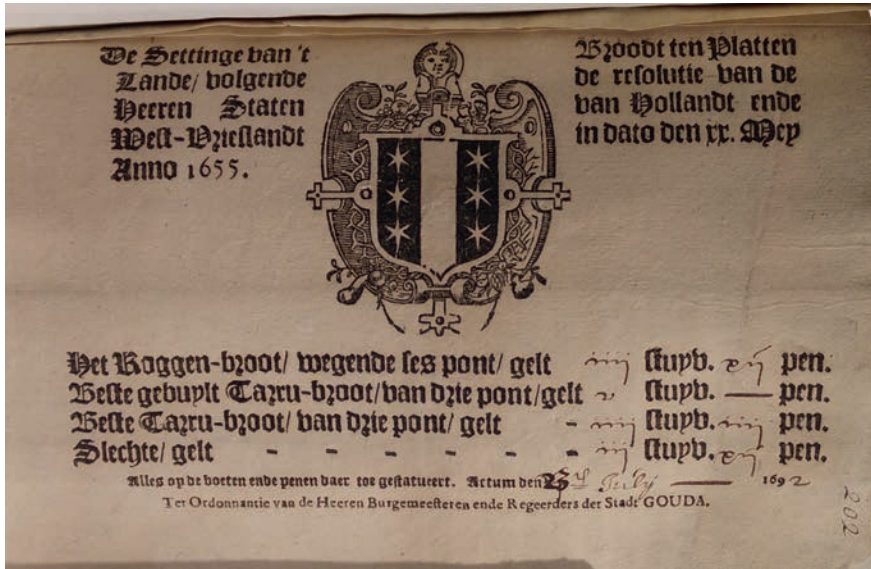 De Settinge van 't
Lande/ volgende
Heeren Staten
West-Vrieslandt
Anno 1655.
Broodt ten Platten
de resolutie van de
van Hollandt ende
in dato den xx. Mey
Het Roggen-broot/ wegende ses pont/ gelt iiij stuyv. xij pen.
Beste gebuylt Tarru-broot/van drie pont/gelt v stuyv. — pen.
Beste Tarru-broot/ van drie pont/ gelt - iiij stuyv. iiij pen.
Slechte/ gelt - - - - - - iij stuyv. xij pen.
Alles op de boeten ende penen daer toe gestatueert. Actum den July — 1692
Ter Ordonnantie van de Heeren Burgemeesteren ende Regeerders der Stadt GOUDA.
202